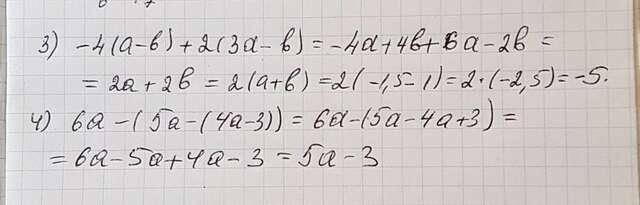 3) -4(a-b)+2(3a-b)=-4a+4b+6a-2b=
=2a+2b=2(a+b)=2(-1,5-1)=2·(-2,5)=-5.
4) 6a-(5a-(4a-3))=6a-(5a-4a+3)=
=6a-5a+4a-3=5a-3